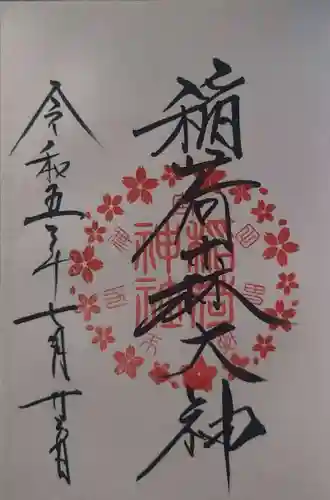 稲荷森大神
令和五年七月廿日
神社